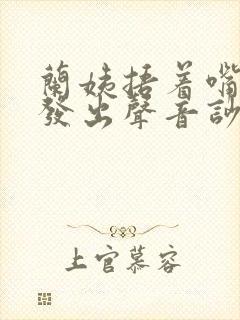 蘭姨捂着嘴
發出聲音
上官慕容